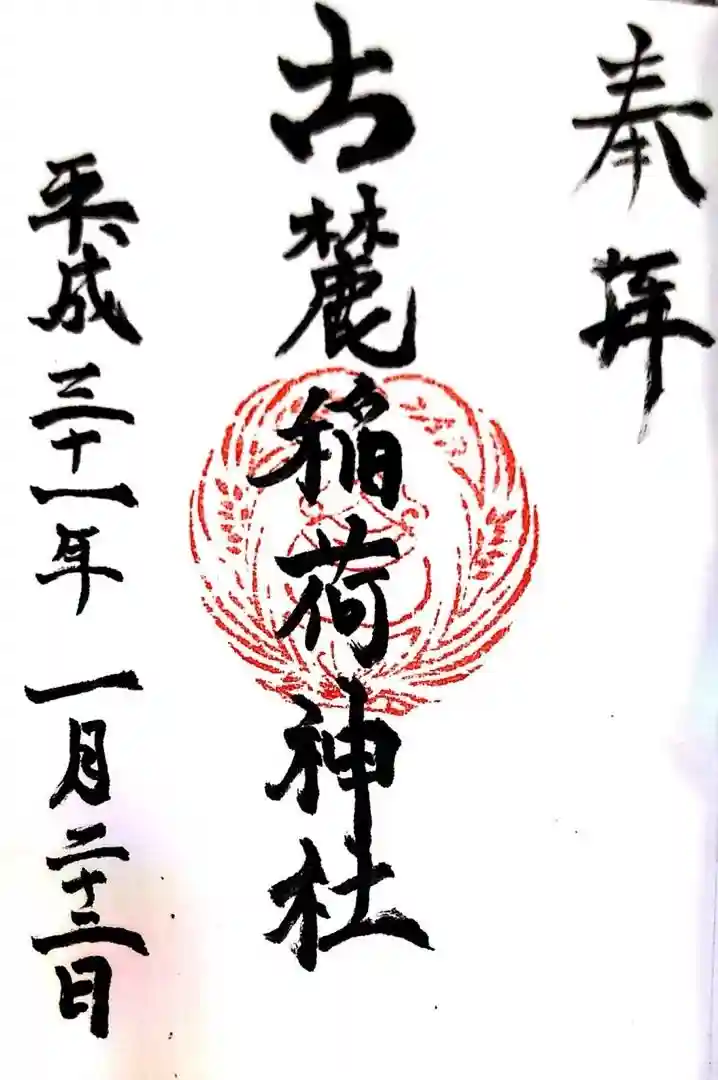 奉拝
古麓稲荷神社
平成三十一年一月二十三日